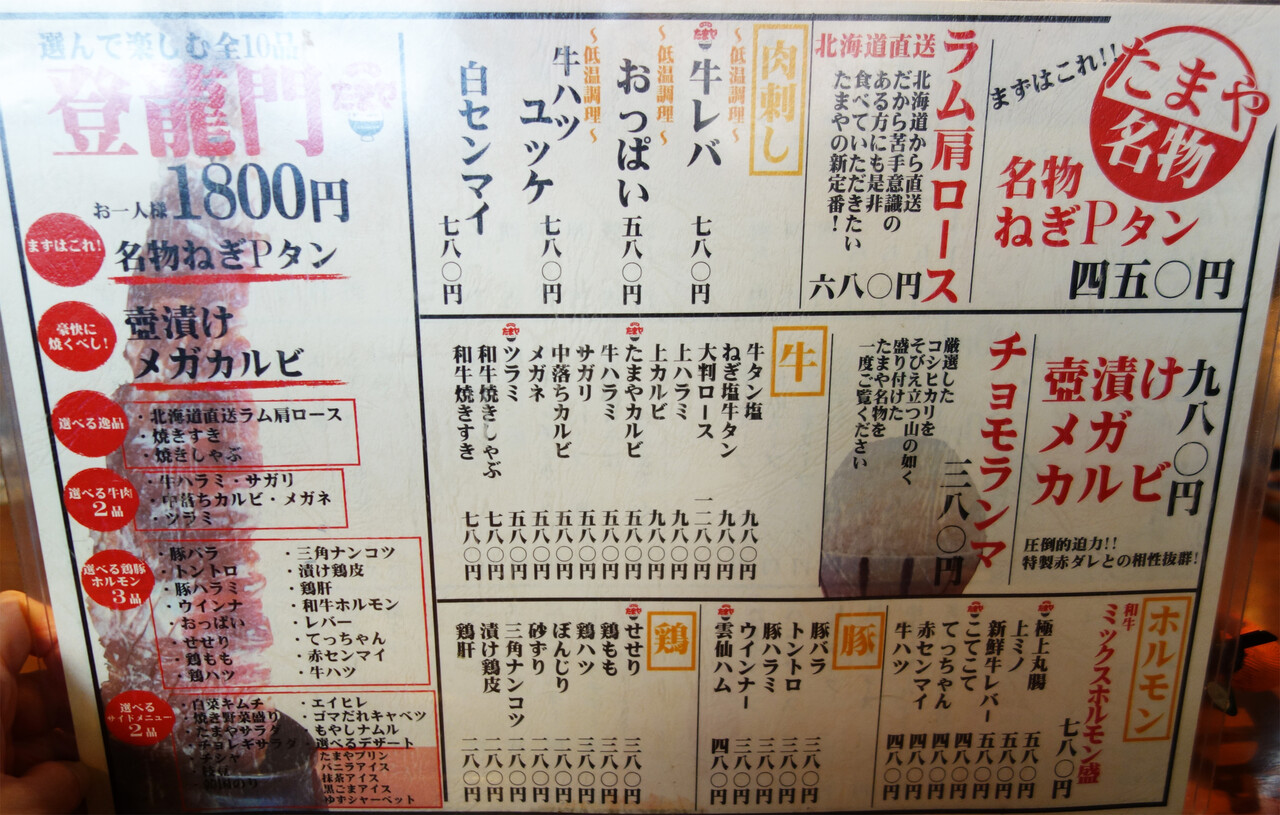 まずはこれ!!
たまや
名物
名物
ねぎPタン
四五〇円
北海道直送
ラム肩ロース
北海道から直送
だから苦手意識の
ある方にも是非
食べていただきたい
たまやの新定番!
六八〇円
肉刺し
〜低温調理〜
たまや
牛レバ
七八〇円
〜低温調理〜
おっぱい
五八〇円
〜低温調理〜
牛ハツ
ユッケ
七八〇円
白センマイ
七八〇円
壺漬け
メガ
カルビ
九八〇円
圧倒的迫力!!
特製赤ダレとの相性抜群!
チョモランマ
厳選した
コシヒカリを
そびえ立つ山の如く
盛り付けた
たまや名物を
一度ご覧ください
三八〇円
牛
牛タン塩 九八〇円
ねぎ塩牛タン 九八〇円
大判ロース 一二八〇円
上ハラミ 九八〇円
上カルビ 九八〇円
たまやカルビ 五八〇円
牛ハラミ 五八〇円
サガリ 五八〇円
中落ちカルビ 五八〇円
メガネ 五八〇円
ツラミ 五八〇円
和牛焼きしゃぶ 七八〇円
和牛焼きすき 七八〇円
ホルモン
和牛
ミックスホルモン盛
七八〇円
極上丸腸 五八〇円
上ミノ 五八〇円
新鮮牛レバー 五八〇円
こてこて 四八〇円
てっちゃん 四八〇円
赤センマイ 四八〇円
牛ハツ 四八〇円
豚
豚バラ 三八〇円
トントロ 三八〇円
豚ハラミ 三八〇円
ウインナー 三八〇円
雲仙ハム 四八〇円
鶏
せせり 三八〇円
鶏もも 三八〇円
鶏ハツ 三八〇円
ぼんじり 二八〇円
砂ずり 二八〇円
三角ナンコツ 二八〇円
漬け鶏皮 二八〇円
鶏肝 二八〇円
選んで楽しむ全10品
登龍門
お一人様1800円
まずはこれ!
名物ねぎPタン
豪快に
焼くべし!
壺漬け
メガカルビ
選べる逸品
・北海道直送ラム肩ロース
・焼きすき
・焼きしゃぶ
選べる牛肉
2品
・牛ハラミ・サガリ
・中落ちカルビ・メガネ
・ツラミ
選べる鶏豚
ホルモン
3品
・豚バラ
・トントロ
・豚ハラミ
・ウインナ
・おっぱい
・せせり
・鶏もも
・鶏ハツ
・三角ナンコツ
・漬け鶏皮
・鶏肝
・和牛ホルモン
・レバー
・てっちゃん
・赤センマイ
・牛ハツ
選べる
サイドメニュー
2品
・白菜キムチ
・焼き野菜盛り
・たまやサラダ
・チョレギサラダ
・チシャ
・エイヒレ
・ゴマだれキャベツ
・もやしナムル
・選べるデザート
たまやプリン
バニラアイス
抹茶アイス
黒ごまアイス
ゆずシャーベット